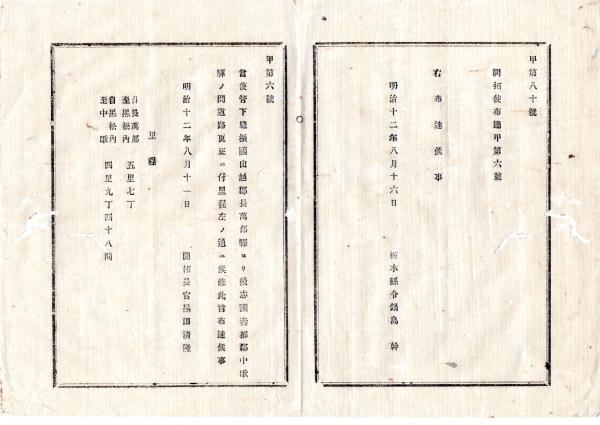 甲第八十號
開拓使布達甲第六號
右布達候事
明治十二年八月十六日
栃木縣令鍋島幹
甲第六號
當使管下膽振國山越郡長萬部驛ヨリ後志國壽都郡中歌
驛ノ間道路更正ニ付里程左ノ通ニ候條此旨布達候事
明治十二年八月十一日
開拓長官黒田清隆
里程
自長萬部
至黒松内
五里七丁
自黒松内
至中歌
四里九丁四十八間